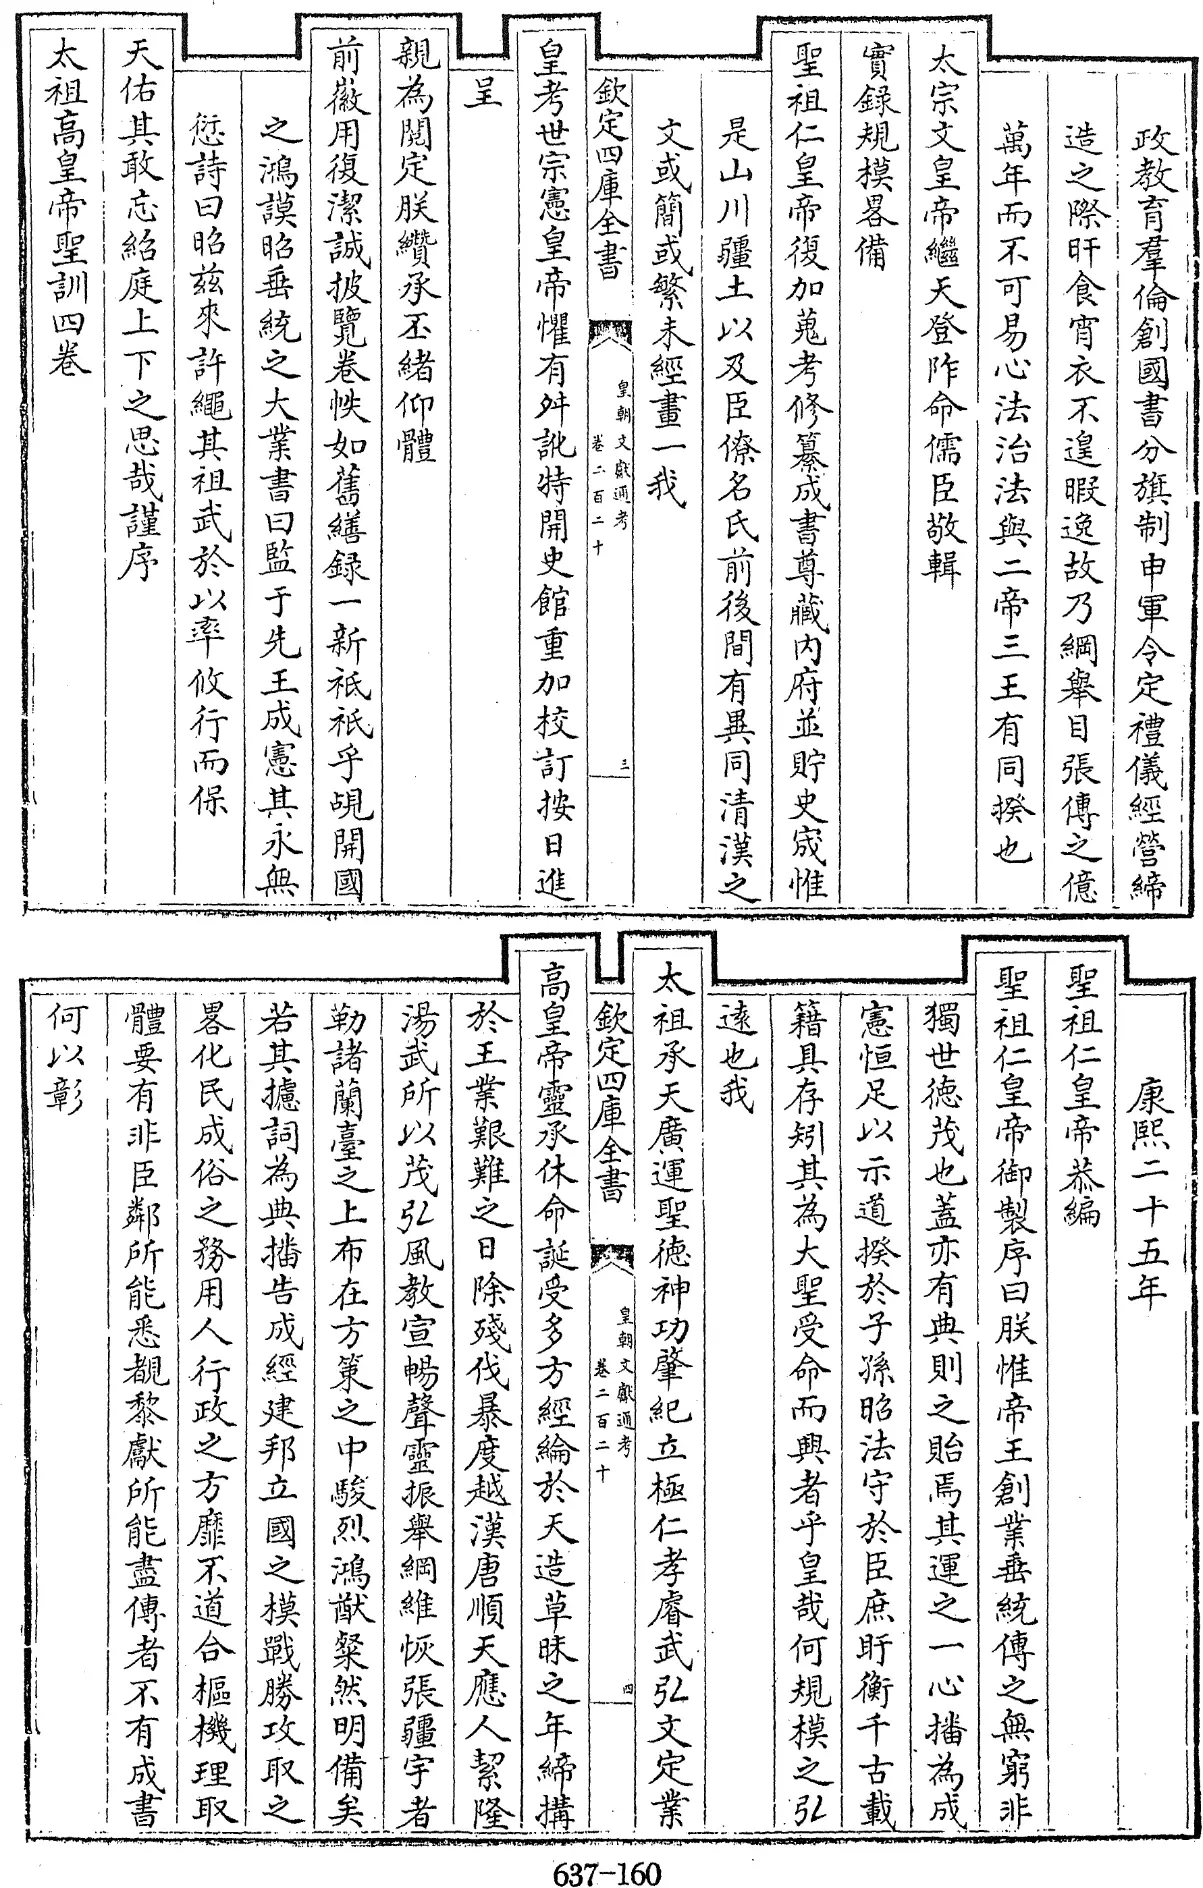 政教育羣倫創國書分旗制申軍令定禮儀經營締
造之際旰食宵衣不遑暇逸故乃綱舉目張傳之億
萬年而不可易心法治法與二帝三王有同揆也
太宗文皇帝繼天登阼命儒臣敬輯
實録規模畧備
聖祖仁皇帝復加蒐考修纂成書尊藏内府並貯史宬惟
是山川疆土以及臣僚名氏前後間有異同清漢之
文或簡或繁未經畫一我
欽定四庫全書
皇朝文獻通考
卷二百二十
三
皇考世宗憲皇帝懼有舛訛特開史館重加校訂按日進
呈
親為閱定朕纘承丕緒仰體
前徽用復潔誠披覽卷帙如舊繕録一新祗祗乎覩開國
之鴻謨昭垂統之大業書曰監于先王成憲其永無
愆詩曰昭兹來許繩其祖武於以率攸行而保
天佑其敢忘紹庭上下之思哉謹序
太祖高皇帝聖訓四卷
康熙二十五年
聖祖仁皇帝恭編
聖祖仁皇帝御製序曰朕惟帝王創業垂統傳之無窮非
獨世徳茂也蓋亦有典則之貽焉其運之一心播為成
憲恒足以示道揆於子孫昭法守於臣庶盱衡千古載
籍具存矧其為大聖受命而興者乎皇哉何規模之弘
逺也我
太祖承天廣運聖徳神功肇紀立極仁孝睿武弘文定業
欽定四庫全書
皇朝文獻通考
卷二百二十
四
高皇帝靈承休命誕受多方經綸於天造草昧之年締搆
於王業艱難之日除殘伐暴度越漢唐順天應人絜隆
湯武所以茂弘風教宣暢聲靈振舉綱維恢張疆宇者
勒諸蘭臺之上布在方策之中駿烈鴻猷粲然明備矣
若其攄詞為典播告成經建邦立國之模戰勝攻取之
畧化民成俗之務用人行政之方靡不道合樞機理取
體要有非臣鄰所能悉覩黎獻所能盡傳者不有成書
何以彰
637-160